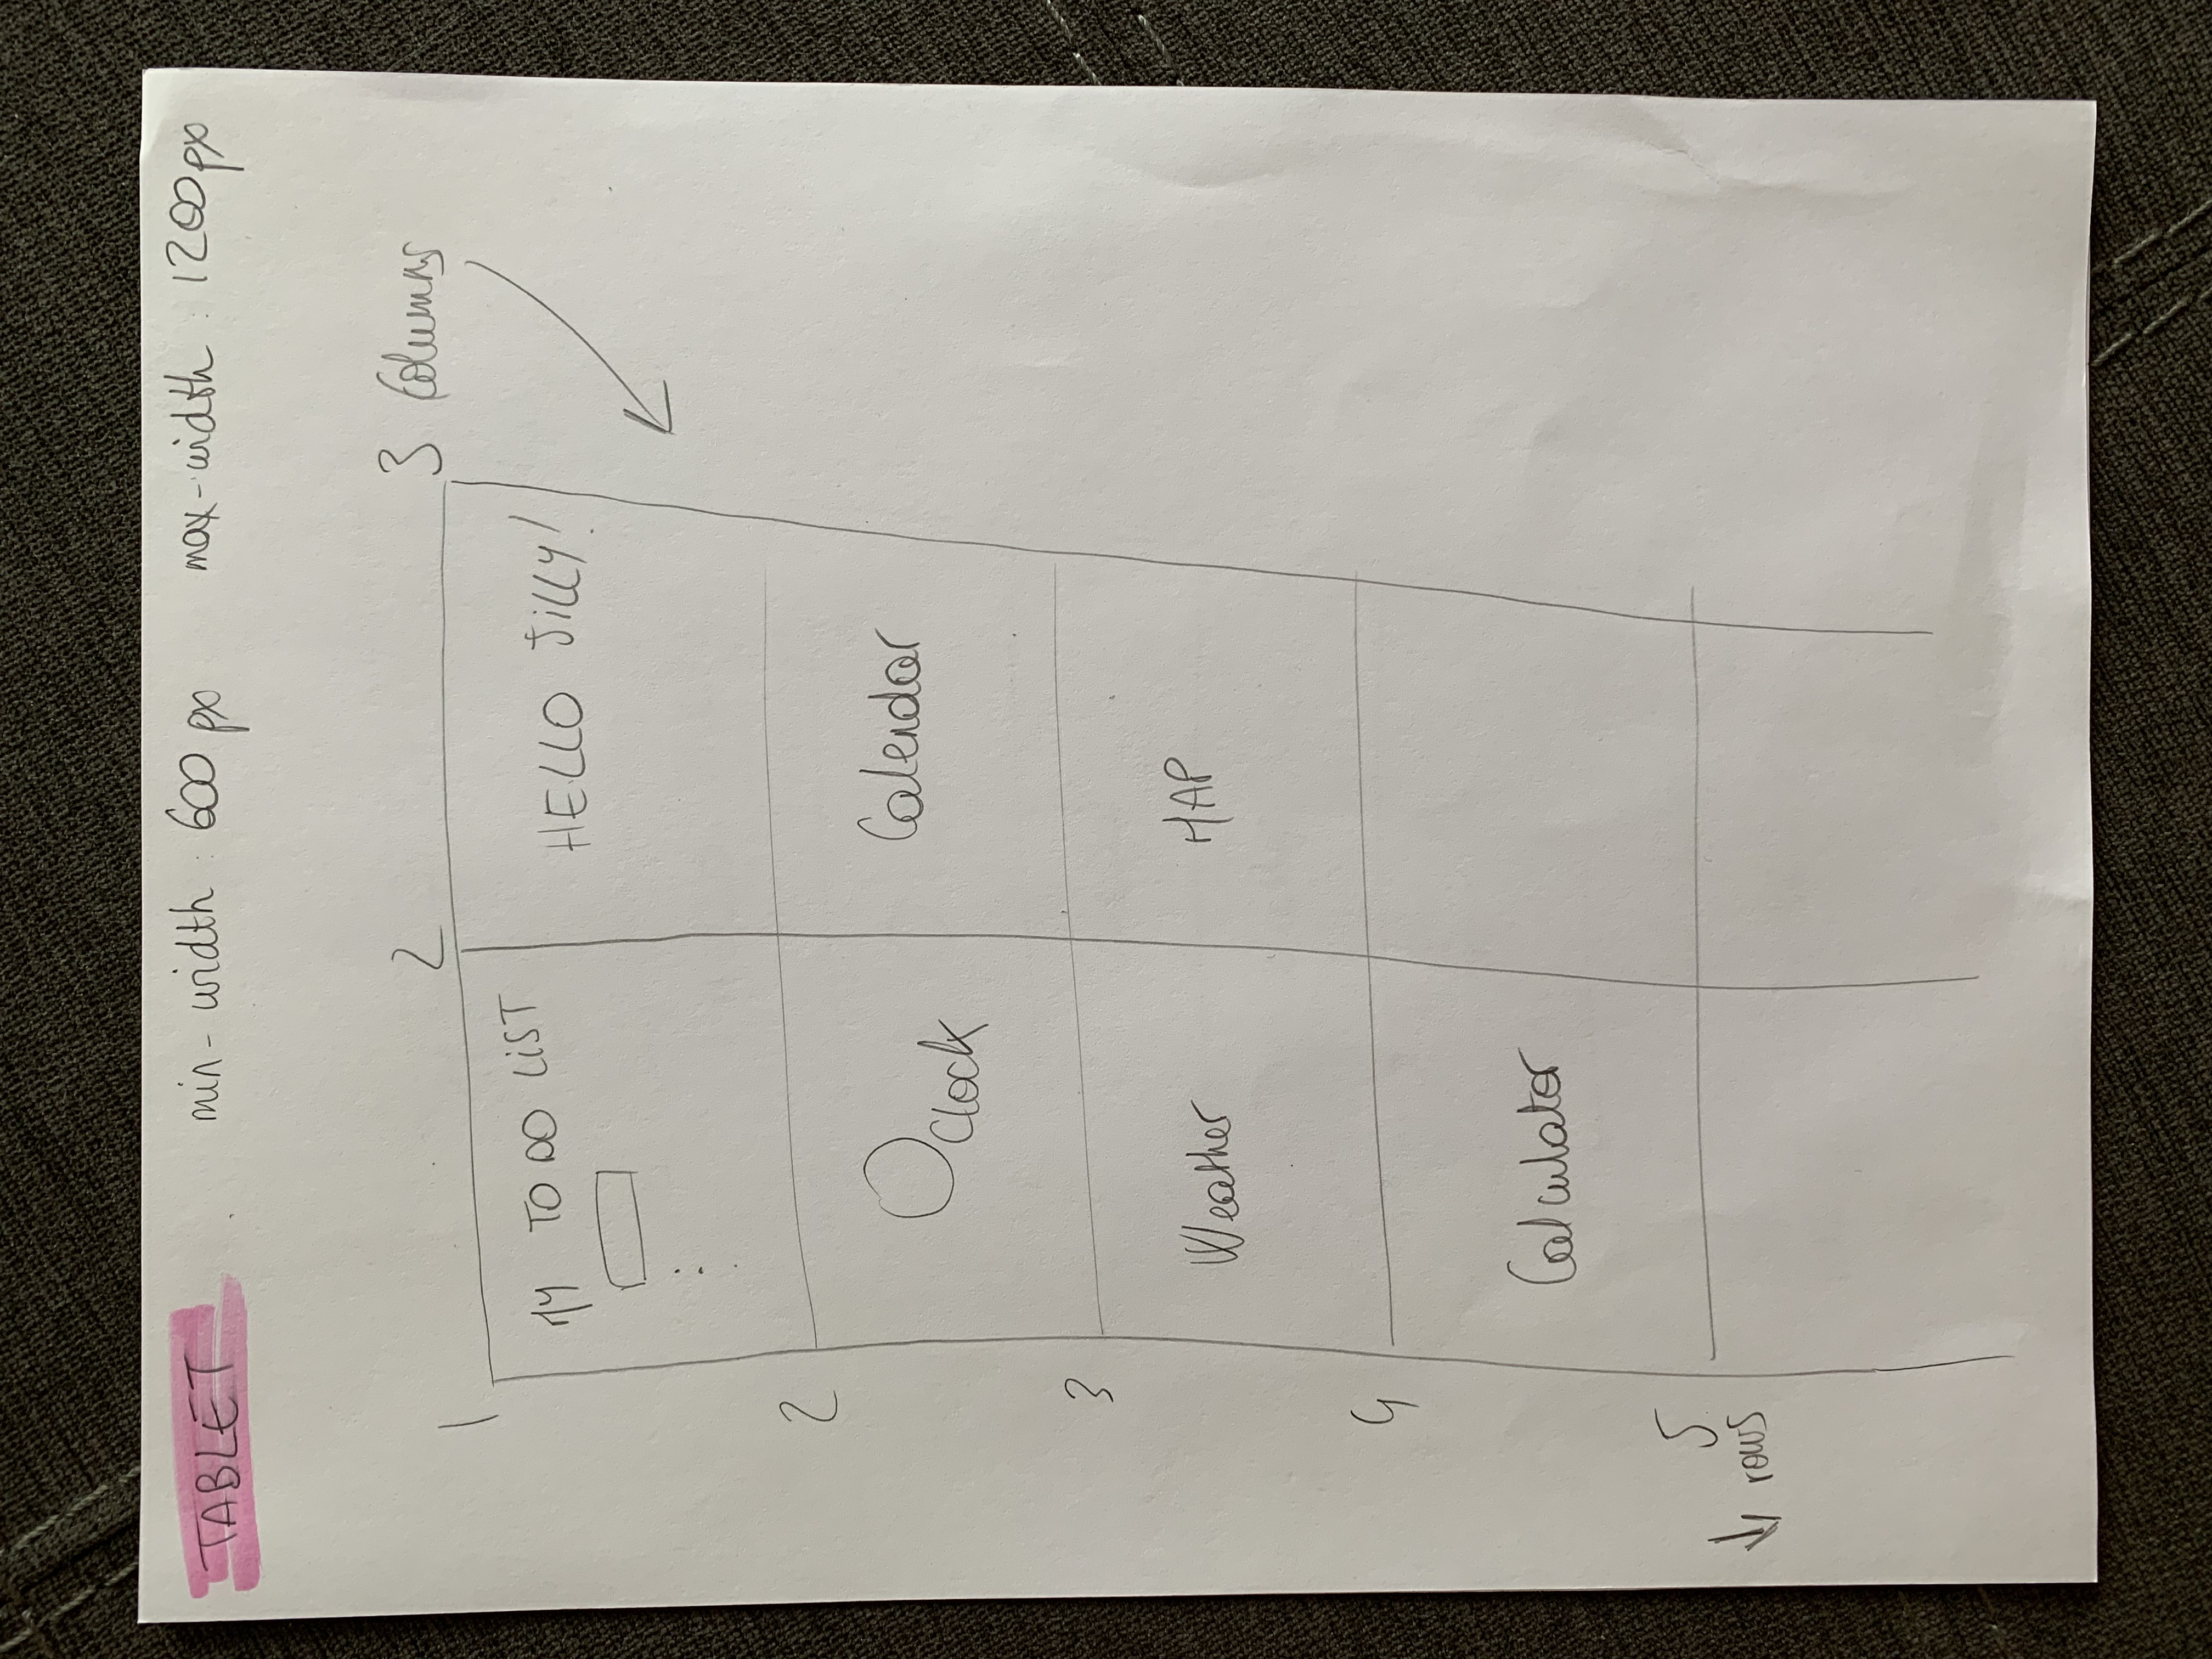 TABLET min-width : 600 px max-width : 1200px
1 2 3 Columns
MY TO DO LIST
HELLO JILLY!
2
Clock
Calendar
3
Weather
MAP
4
Calculator
5
rows